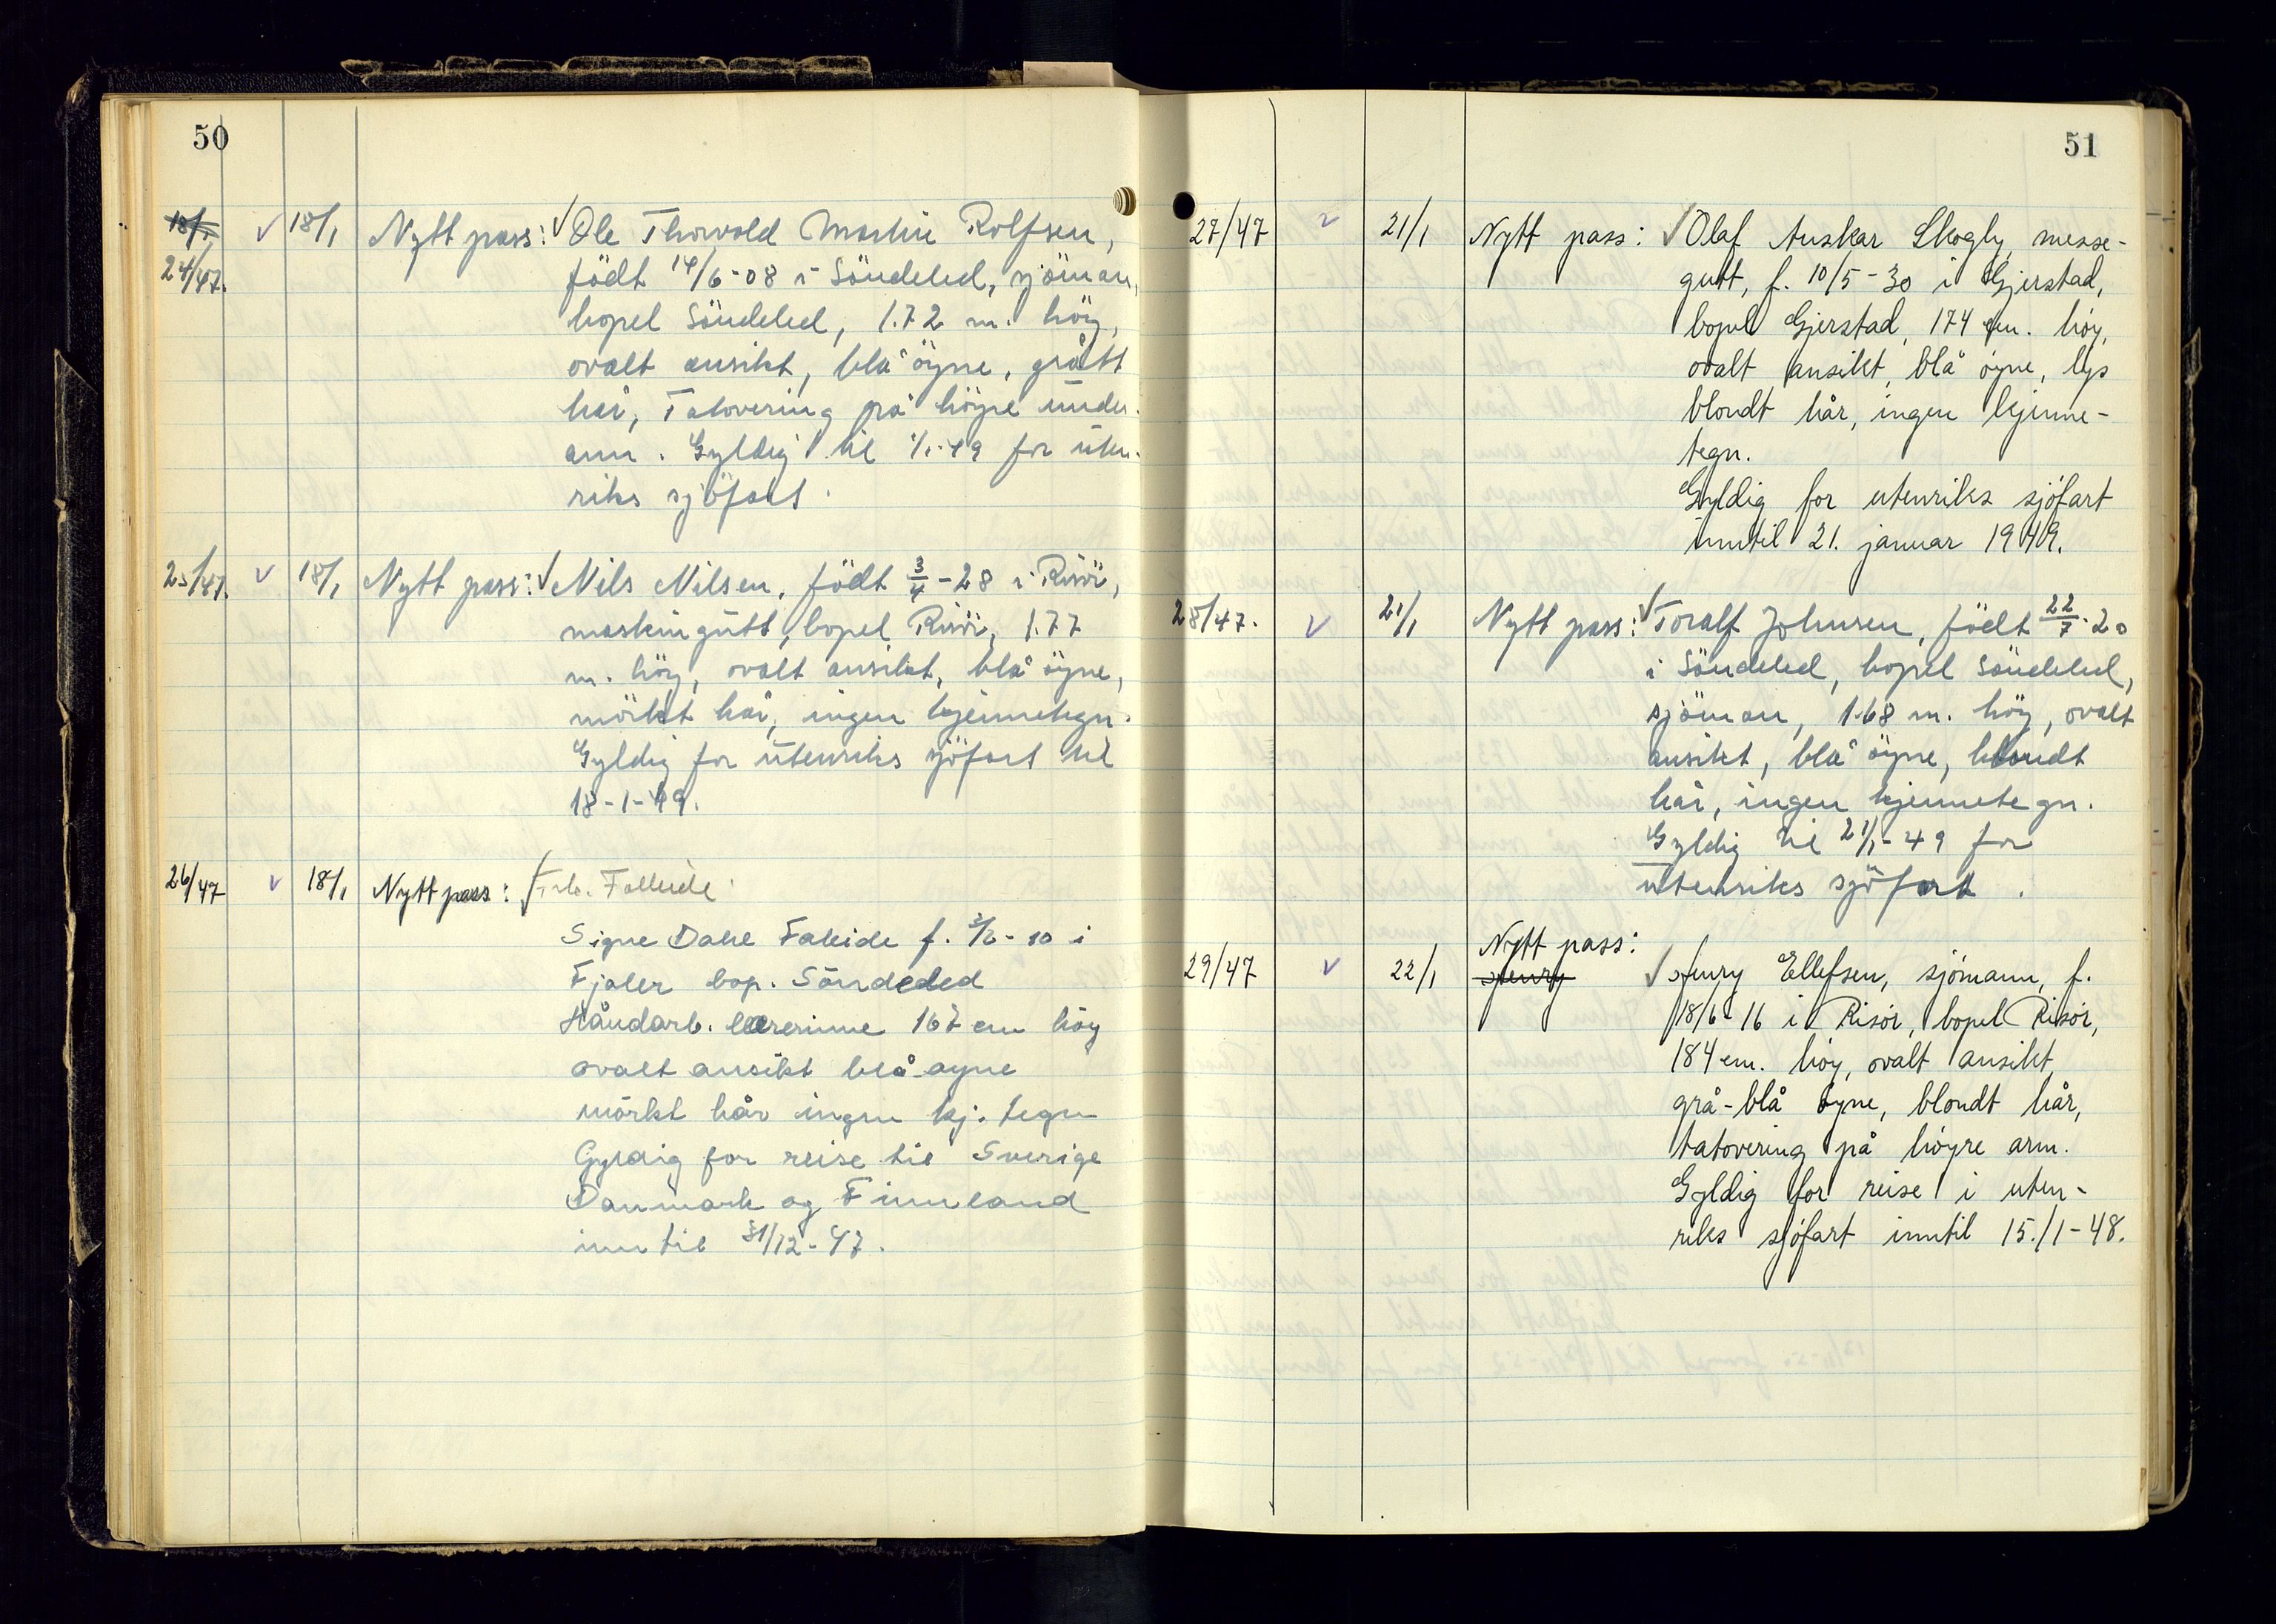 50
24/47. 18/1 Nytt pass: Ole Thorvold Martin Rolfsen,
födt 14/6-08 i Söndeled, sjöman,
bopel Söndeled, 1.72 m. höy,
ovalt ansikt, blå öyne, grått
hår, Tatovering på höyre under-
arm. Gyldig til 1/1-49 for uten-
riks sjöfart.
25/47. 18/1 Nytt pass: Nils Nilsen, födt 3/4-28 i Risör,
maskingutt, bopel Risör, 1.77
m. höy, ovalt ansikt, blå öyne,
mörkt hår, ingen kjennetegn.
Gyldig for utenriks sjöfart til
18-1-49.
26/47 18/1 Nytt pass:
Signe Dahe Faleide f. 3/2-10 i
Fjaler bop. Söndeled
Håndarb. lærerinne 167 cm höy
ovalt ansikt blå øyne
mörkt hår ingen kj. tegn
Gyldig for reise til Sverige
Danmark og Finnland
inntil 31/12-47.
51
27/47 21/1 Nytt pass: Olaf Anskar Skogly, messe-
gutt, f. 10/5-30 i Gjerstad,
bopel Gjerstad, 174 cm. höy,
ovalt ansikt, blå öyne, lys
blondt hår, ingen kjenne-
tegn.
Gyldig for utenriks sjöfart
inntil 21. januar 1949.
28/47. 21/1 Nytt pass: Toralf Johnsen, födt 22/7-20
i Söndeled, bopel Söndeled,
sjöman, 1.68 m. höy, ovalt
ansikt, blå öyne, blondt
hår, ingen kjennetegn.
Gyldig til 21/1-49 for
utenriks sjöfart.
Nytt pass:
29/47 22/1 Henry Henry Ellefsen, sjömann, f.
18/6-16 i Risör, bopel Risör,
184 cm. höy, ovalt ansikt,
grå-blå öyne, blondt hår,
tatovering på höyre arm.
Gyldig for reise i uten-
riks sjöfart inntil 15./1-48.